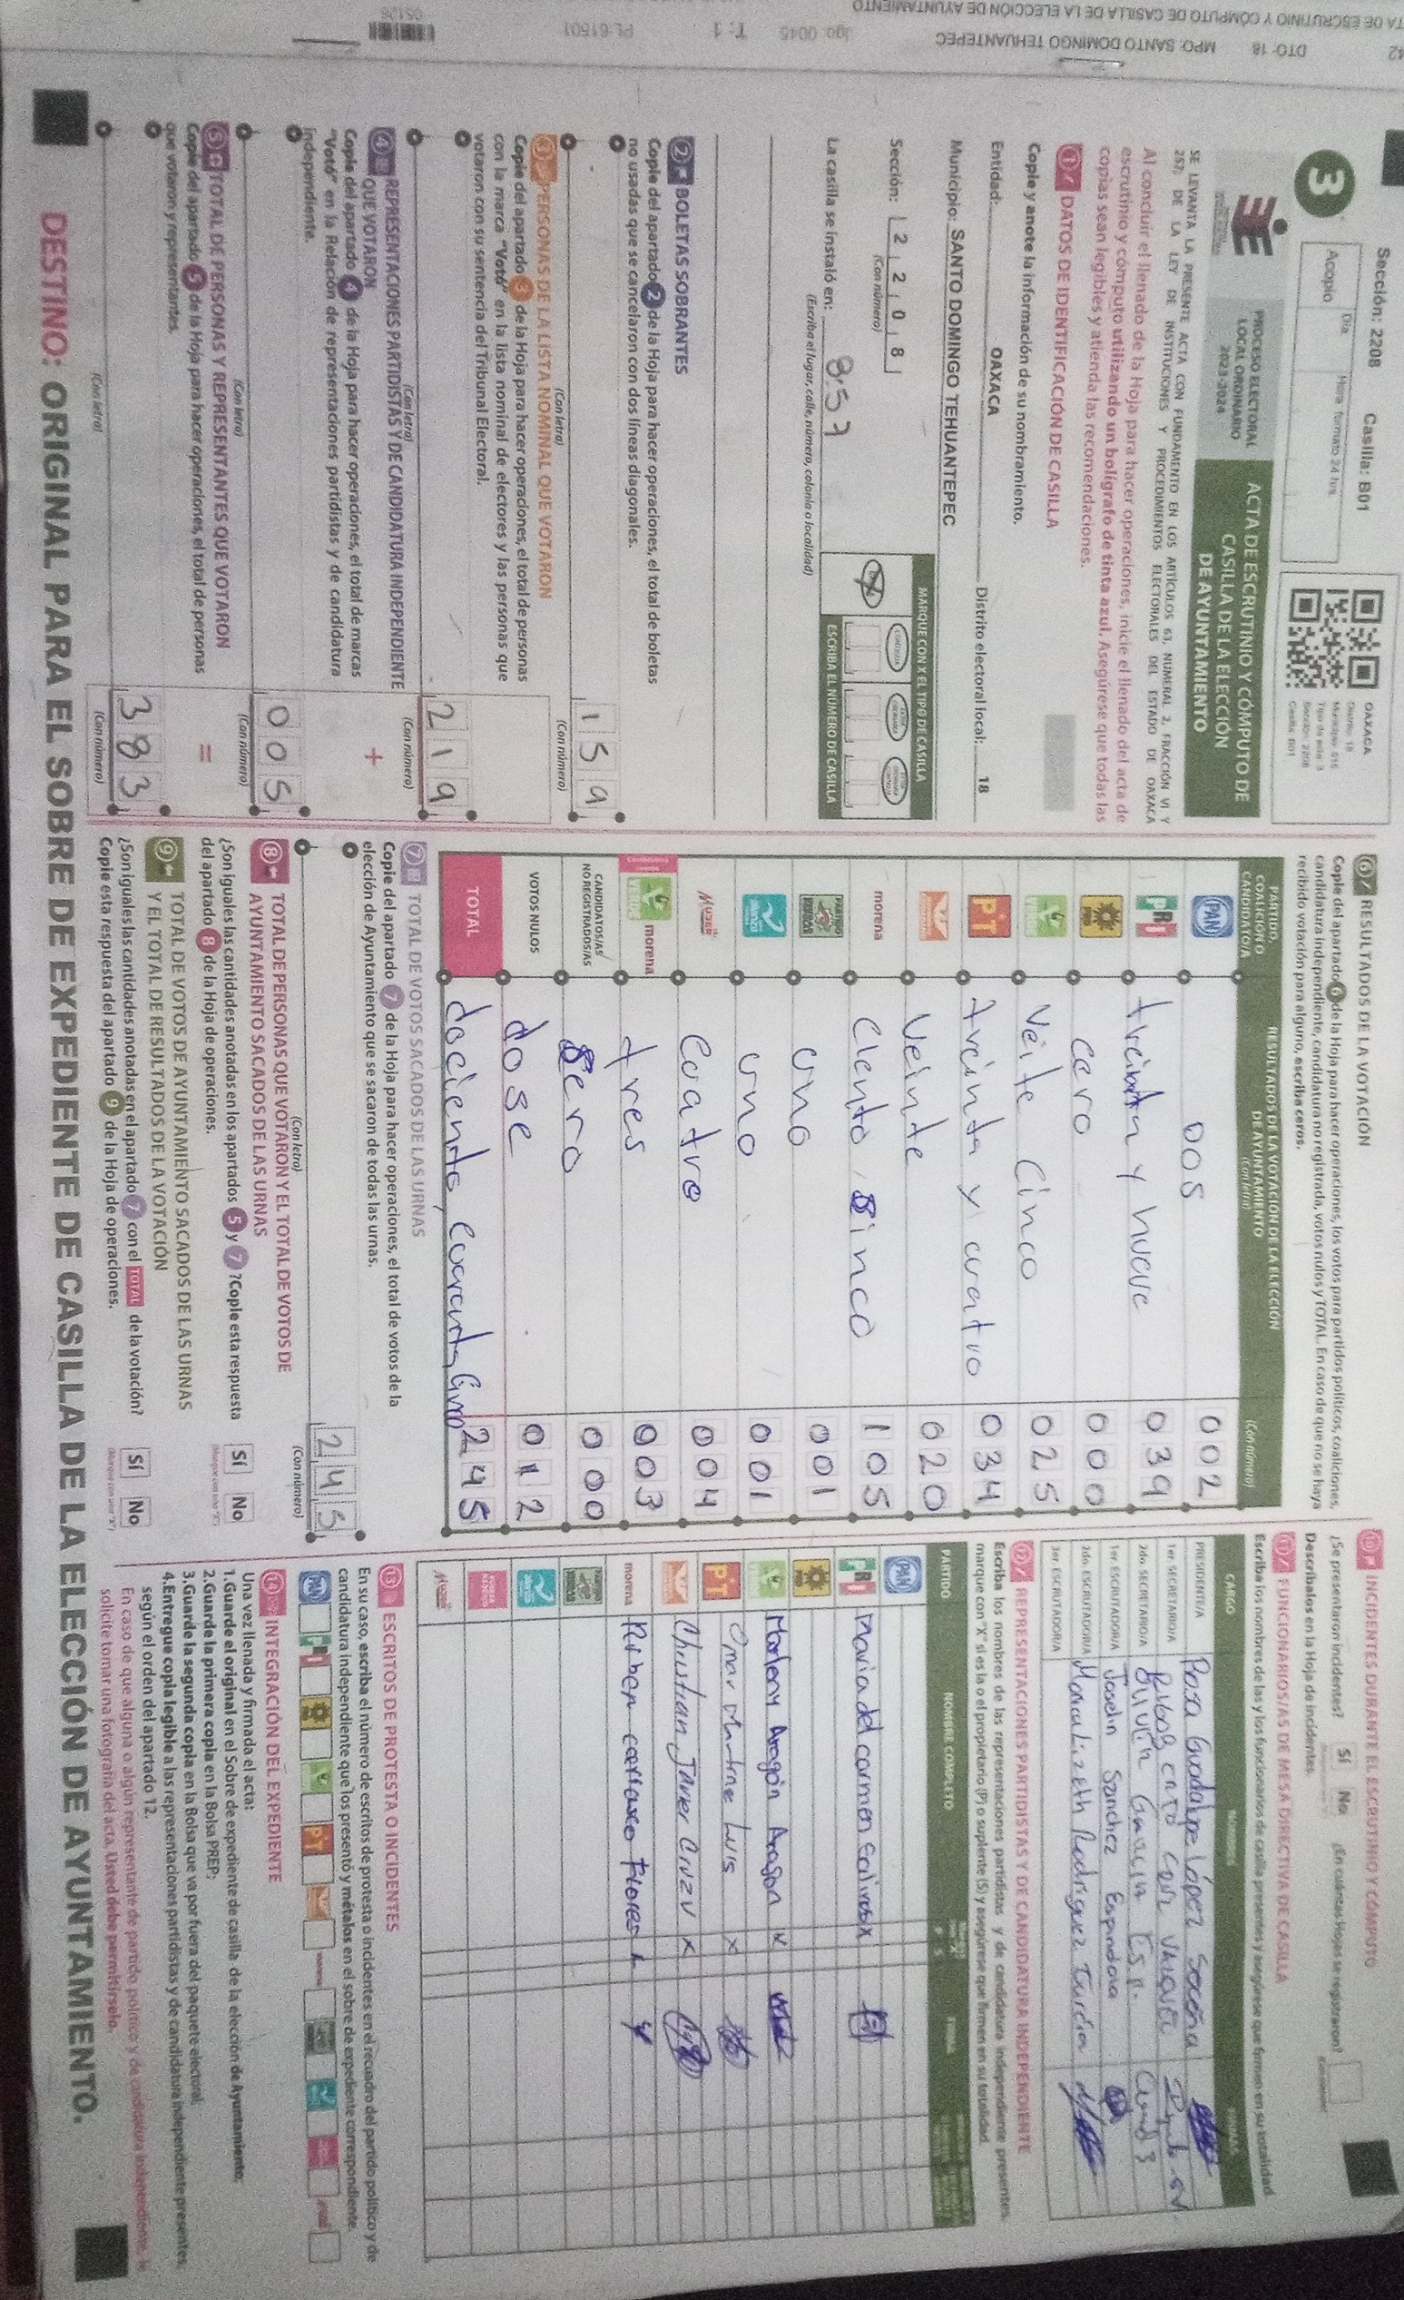 TA DE ESCRUTINIO Y CÓMPUTO DE CASILLA DE LA ELECCIÓN DE AYUNTAMIENTO
DTO: 18 MPO: SANTO DOMINGO TEHUANTEPEC
T: 1
Sección: 2208 Casilla: B01
3
Día
Hora formato 24 hrs
Acopio
OAXACA
PROCESO ELECTORAL
LOCAL ORDINARIO
2023-2024
ACTA DE ESCRUTINIO Y CÓMPUTO DE
CASILLA DE LA ELECCIÓN
DE AYUNTAMIENTO
SE LEVANTA LA PRESENTE ACTA CON FUNDAMENTO EN LOS ARTÍCULOS 63, NUMERAL 2, FRACCIÓN VI Y
257; DE LA LEY DE INSTITUCIONES Y PROCEDIMIENTOS ELECTORALES DEL ESTADO DE OAXACA
Al concluir el llenado de la Hoja para hacer operaciones, inicie el llenado del acta de
escrutinio y cómputo utilizando un bolígrafo de tinta azul. Asegúrese que todas las
copias sean legibles y atienda las recomendaciones.
1 DATOS DE IDENTIFICACIÓN DE CASILLA
Copie y anote la información de su nombramiento.
Entidad: OAXACA Distrito electoral local: 18
Municipio: SANTO DOMINGO TEHUANTEPEC
Sección: 2 2 0 8
(Con número)
MARQUE CON X EL TIPO DE CASILLA
ESCRIBA EL NÚMERO DE CASILLA
La casilla se instaló en:
(Escriba el lugar, calle, número, colonia o localidad)
2 BOLETAS SOBRANTES
Copie del apartado 2 de la Hoja para hacer operaciones, el total de boletas
no usadas que se cancelaron con dos líneas diagonales.
159
(Con letra) (Con número)
3 PERSONAS DE LA LISTA NOMINAL QUE VOTARON
Copie del apartado 3 de la Hoja para hacer operaciones, el total de personas
con la marca "Votó" en la lista nominal de electores y las personas que
votaron con su sentencia del Tribunal Electoral.
219
(Con letra) (Con número)
4 REPRESENTACIONES PARTIDISTAS Y DE CANDIDATURA INDEPENDIENTE
QUE VOTARON
+
Copie del apartado 4 de la Hoja para hacer operaciones, el total de marcas
"Votó" en la Relación de representaciones partidistas y de candidatura
independiente.
005
(Con letra) (Con número)
5 TOTAL DE PERSONAS Y REPRESENTANTES QUE VOTARON
=
Copie del apartado 5 de la Hoja para hacer operaciones, el total de personas
que votaron y representantes.
383
(Con letra) (Con número)
6 RESULTADOS DE LA VOTACIÓN
Copie del apartado 6 de la Hoja para hacer operaciones, los votos para partidos políticos, coaliciones,
candidatura independiente, candidatura no registrada, votos nulos y TOTAL. En caso de que no se haya
recibido votación para alguno, escriba ceros.
PARTIDO, COALICIÓN O CANDIDATO/A
RESULTADOS DE LA VOTACIÓN DE LA ELECCIÓN
DE AYUNTAMIENTO
(Con letra) (Con número)
PAN DOS 002
PRI treinta y nueve 039
PRD cero 000
VERDE Veite Cinco 025
PT treinta y cuatro 034
Veinte 020
morena Ciento, sinco 105
uno 001
uno 001
MUJER Cuatro 004
VERDE morena tres 003
CANDIDATOS/AS NO REGISTRADOS/AS sero 000
VOTOS NULOS dose 012
TOTAL 245
7 TOTAL DE VOTOS SACADOS DE LAS URNAS
Copie del apartado 7 de la Hoja para hacer operaciones, el total de votos de la
elección de Ayuntamiento que se sacaron de todas las urnas.
245
(Con letra) (Con número)
8 TOTAL DE PERSONAS QUE VOTARON Y EL TOTAL DE VOTOS DE
AYUNTAMIENTO SACADOS DE LAS URNAS
¿Son iguales las cantidades anotadas en los apartados 5 y 7 ? Copie esta respuesta
del apartado 8 de la Hoja de operaciones.
Sí No
9 TOTAL DE VOTOS DE AYUNTAMIENTO SACADOS DE LAS URNAS
Y EL TOTAL DE RESULTADOS DE LA VOTACIÓN
¿Son iguales las cantidades anotadas en el apartado 7 con el TOTAL de la votación?
Copie esta respuesta del apartado 9 de la Hoja de operaciones.
Sí No
10 INCIDENTES DURANTE EL ESCRUTINIO Y CÓMPUTO
¿Se presentaron incidentes? Sí No ¿En cuántas Hojas se registraron?
Descríbalos en la Hoja de incidentes.
11 FUNCIONARIOS/AS DE MESA DIRECTIVA DE CASILLA
Escriba los nombres de las y los funcionarios de casilla presentes y asegúrese que firmen en su totalidad.
CARGO NOMBRES FIRMAS
PRESIDENTE/A Rosa Guadalupe López
1er. SECRETARIO/A
2do. SECRETARIO/A
1er. ESCRUTADOR/A Sanchez
2do. ESCRUTADOR/A Rodríguez
3er. ESCRUTADOR/A
12 REPRESENTACIONES PARTIDISTAS Y DE CANDIDATURA INDEPENDIENTE
Escriba los nombres de las representaciones partidistas y de candidatura independiente presentes,
marque con "X" si es la o el propietario (P) o suplente (S) y asegúrese que firmen en su totalidad.
PARTIDO NOMBRE COMPLETO
PAN
PRI Maria del carmen x
PRD
VERDE Marleny Aragón Aragon x
PT Omar Luis x
Christian Javier Cruz V x
morena Flores
MUJER
13 ESCRITOS DE PROTESTA O INCIDENTES
En su caso, escriba el número de escritos de protesta o incidentes en el recuadro del partido político y de
candidatura independiente que los presentó y métalos en el sobre de expediente correspondiente.
14 INTEGRACIÓN DEL EXPEDIENTE
Una vez llenada y firmada el acta:
1.Guarde el original en el Sobre de expediente de casilla de la elección de Ayuntamiento;
2.Guarde la primera copia en la Bolsa PREP;
3.Guarde la segunda copia en la Bolsa que va por fuera del paquete electoral;
4.Entregue copia legible a las representaciones partidistas y de candidatura independiente presentes,
según el orden del apartado 12.
En caso de que alguna o algún representante de partido político y de candidatura independiente, le
solicite tomar una fotografía del acta. Usted debe permitírselo.
DESTINO: ORIGINAL PARA EL SOBRE DE EXPEDIENTE DE CASILLA DE LA ELECCIÓN DE AYUNTAMIENTO.